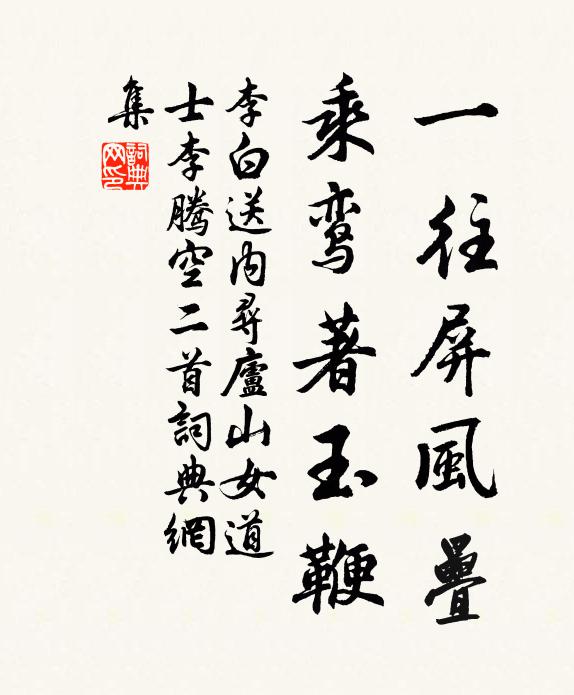 一往屏風疊
乘鸾著玉鞭
李白送内尋廬山女道
士李騰空二首詞典網
集
詞典
网印